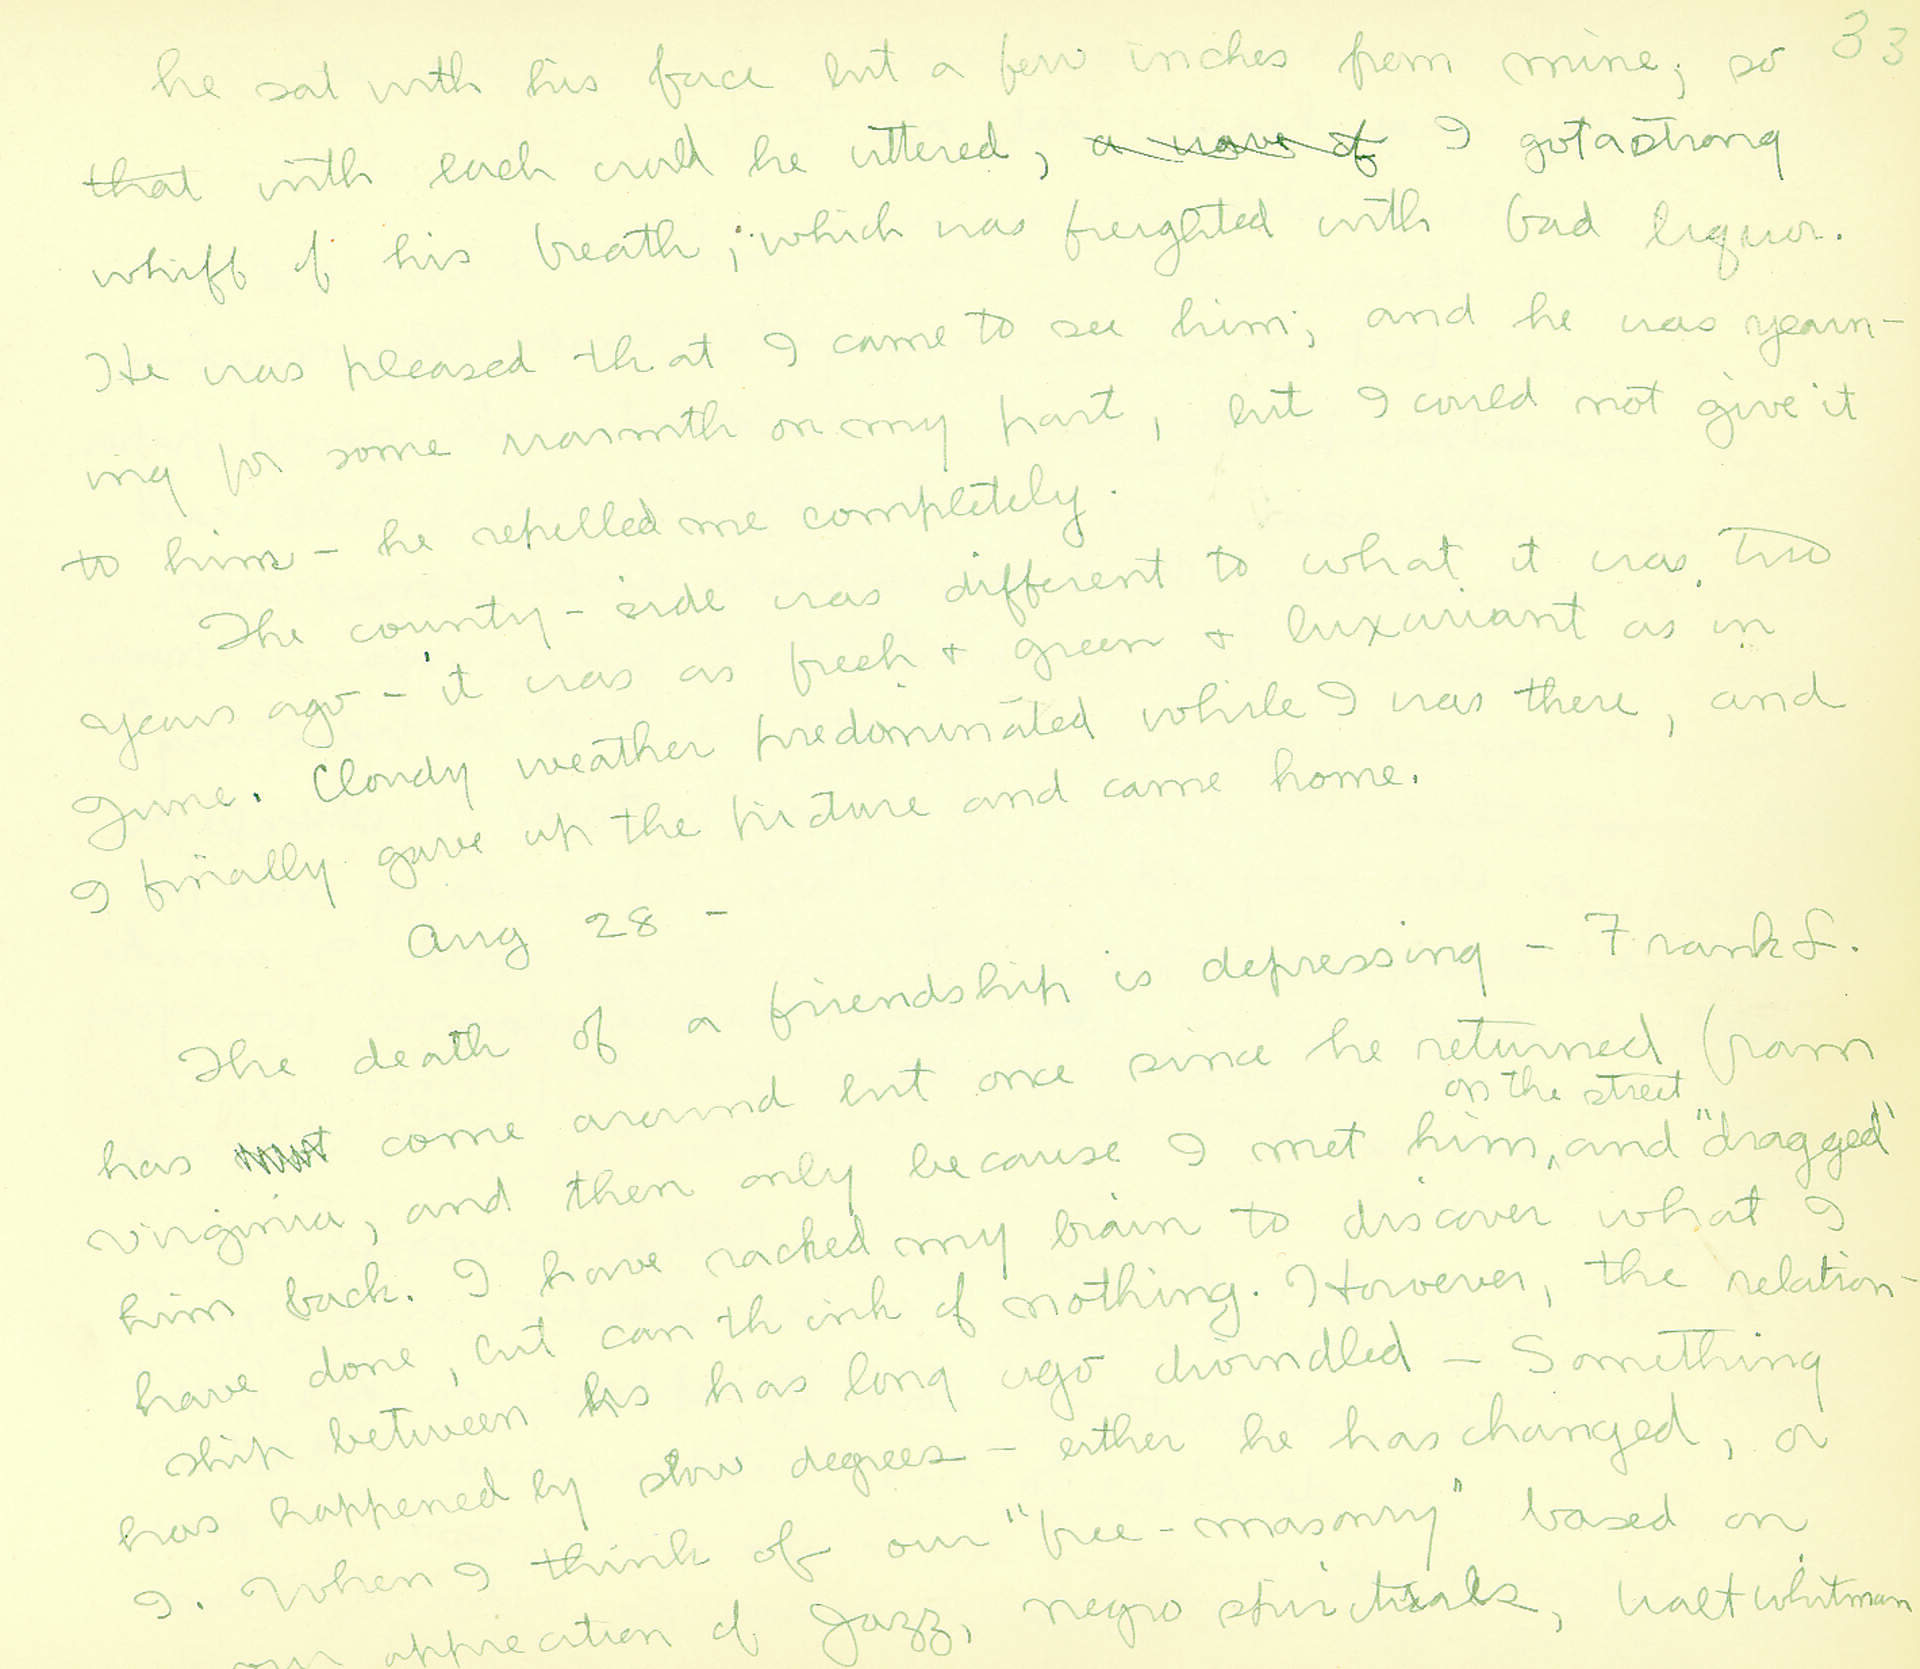 33
he sat with his face but a few inches from mine, so
that with each word he uttered, a wave of I got a strong
whiff of his breath, which was freighted with bad liquor.
He was pleased that I came to see him; and he was yearn-
ing for some warmth on my part, but I could not give it
to him - he repelled me completely.
The county-side was different to what it was two
years ago - it was as fresh + green + luxuriant as in
June. Cloudy weather predominated while I was there, and
I finally gave up the picture and came home.
Aug 28 -
The death of a friendship is depressing - Frank L.
has come around but once since he returned from
on the street
Virginia, and then only because I met him, and "dragged"
him back. I have racked my brain to discover what I
have done, but can think of nothing. However, the relation-
ship between us has long ago dwindled - Something
has happened by slow degrees - either he has changed, or
I. When I think of our "free-masonry" based on
our appreciation of Jazz, negro spirituals, Walt Whitman